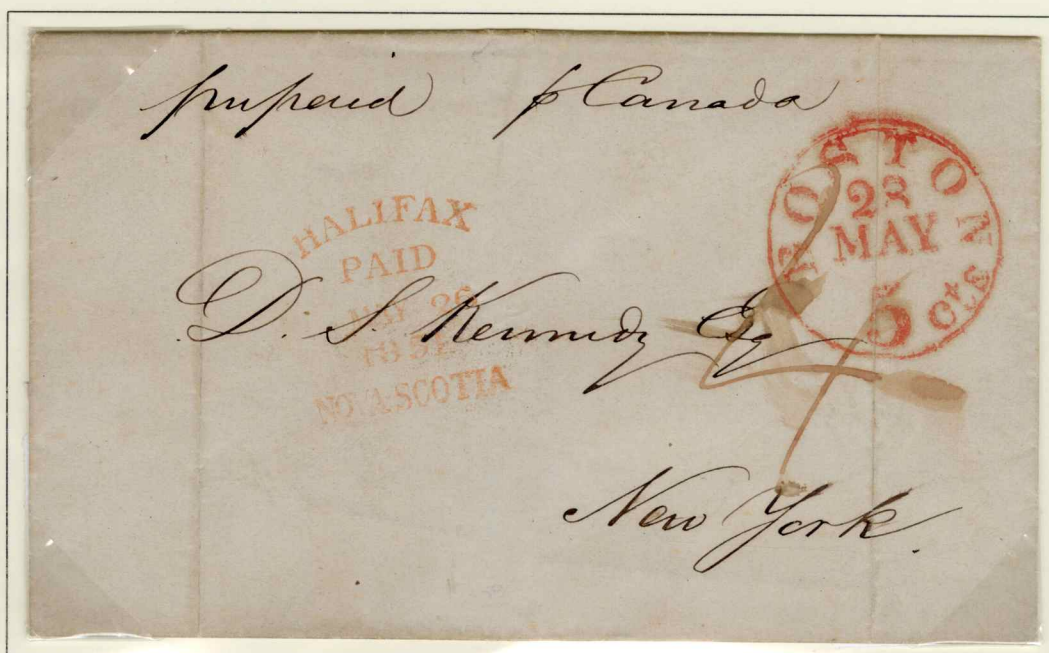 prepaid p Canada
BOSTON
28
MAY
5 cts
HALIFAX
PAID
MAY 26
1851
NOVA SCOTIA
D. S. Kennedy Esq
4
New York.